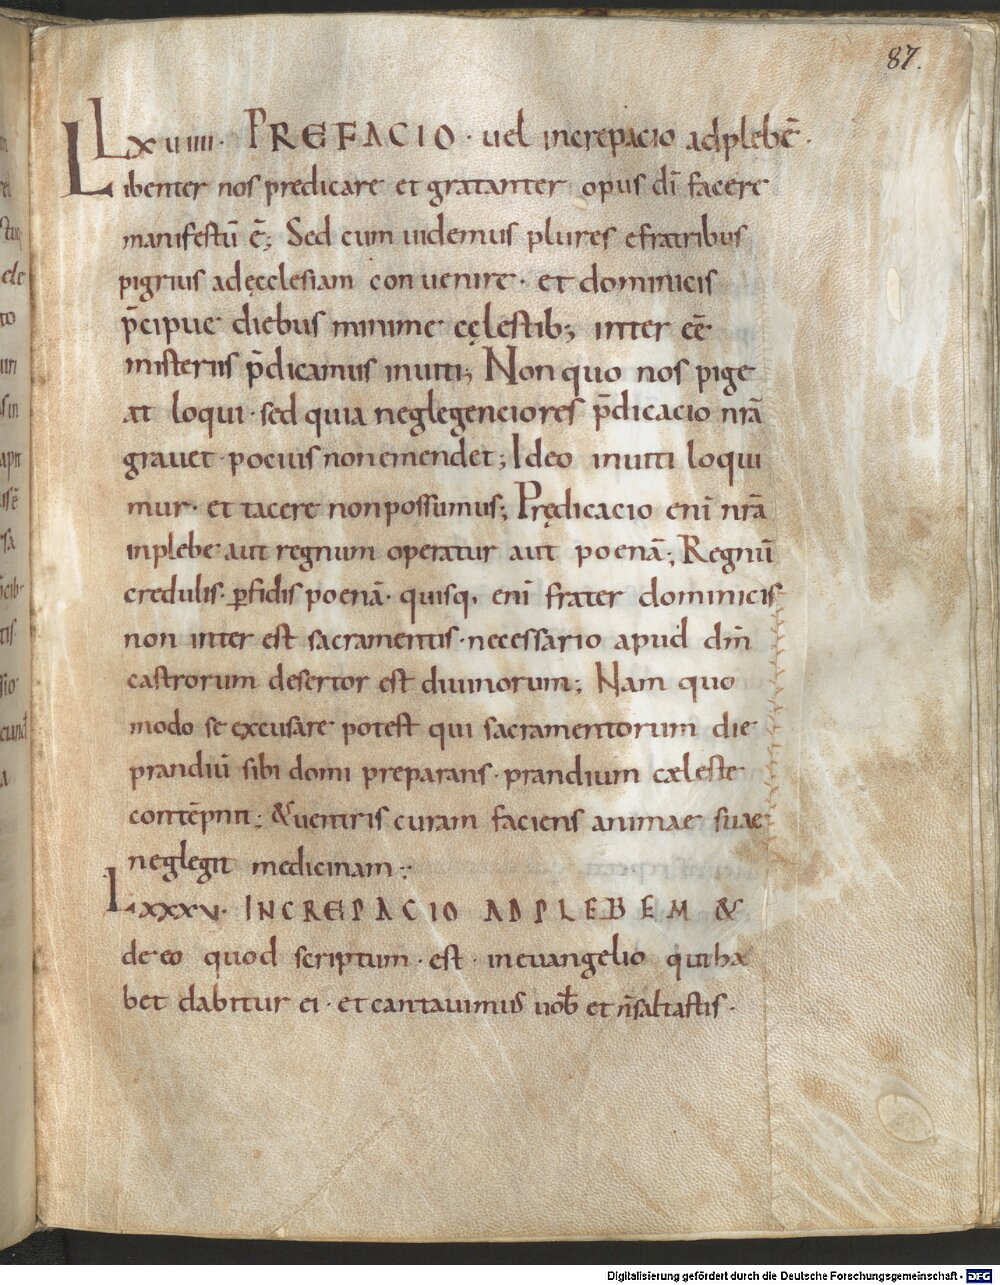 87.
Lxuiiii· PREFACIO · uel increpacio adplebē·
Libenter nos predicare et gratanter opus dī facere
manifestū ē; Sed cum uidemus plures efratribus
pigrius adęcclesiam conuenire· et dominicis
p̄cipue diebus minime cęlestib; inter eē
misteriis p̄dicamus inuiti; Non quo nos pige
at loqui· sed quia neglegenciores p̄dicacio nrā
grauet· pocius nonemendet; Ideo inuiti loqui
mur· et tacere nonpossumus; Prędicacio enī nrā
inplebe aut regnum operatur aut poenā; Regnū
credulis· ꝑfidis poenā· quisq, enī frater dominicis
non inter est sacramentis· necessario apud dm̄
castrorum desertor est diuinorum; Nam quo
modo se excusare potest qui sacramentorum die
prandiū sibi domi preparans· prandium cæleste
contēpnit; &uentris curam faciens animae suae
neglegit medicinam;
Lxxxv· INCREPACIO ADPLEBEM &
de eo quod scriptum· est· ineuangelio qui ha
bet dabitur ei· et cantauimus uob̄ et n̄saltastis·
Digitalisierung gefördert durch die Deutsche Forschungsgemeinschaft - DFG